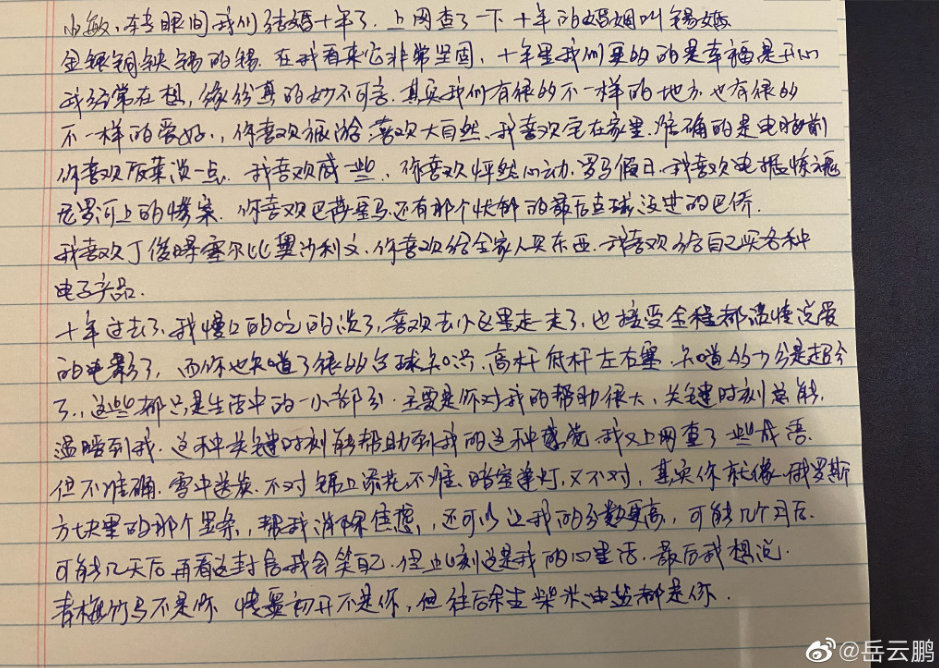 小敏，转眼间我们结婚十年了．上网查了一下 十年的婚姻叫锡婚
金银铜铁锡的锡．在我看来它非常坚固，十年里我们更多的是幸福是开心
我经常在想，缘份真的妙不可言．其实我们有很多不一样的地方 也有很多
不一样的爱好．，你喜欢旅游 喜欢大自然、我喜欢宅在家里．准确的是电脑前
你喜欢饭菜淡一点．我喜欢咸一些．你喜欢怦然心动．罗马假日．我喜欢电锯惊魂
尼罗河上的惨案．你喜欢巴萨皇马．还有那个快的最后点球没进的巴侨．
我喜欢丁俊晖塞尔比奥沙利文．你喜欢给全家人买东西．我喜欢给自己买各种
电子产品．
十年过去了．我慢慢的吃的淡了，喜欢去小区里走一走了，也接受全程都温情说爱
的电影了，而你也知道了很多台球知识．高杆低杆左右塞．知道多少分是超分
了．，这些都只是生活中的一小部分．主要是你对我的帮助很大，关键时刻总能
温暖到我．这种关键时刻能帮助到我的这种感觉．我又上网查了一些成语．
但不准确．雪中送炭．不对 锦上添花不准．暗室逢灯，又不对，其实你就像俄罗斯
方块里的那个竖条，帮我消除焦虑，还可以让我的分数更高，可能几个月后．
可能几天后 再看这封信我会笑自己．但此刻这是我的心里话．最后我想说．
青梅竹马不是你 情窦初开不是你，但往后余生柴米油盐都是你．
@岳云鹏